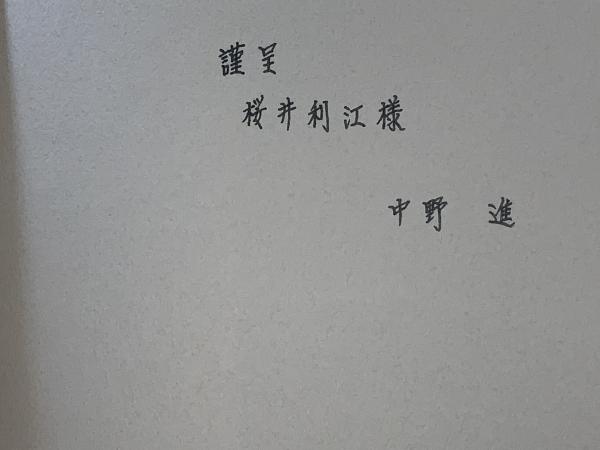 謹呈
桜井利江様
中野 進